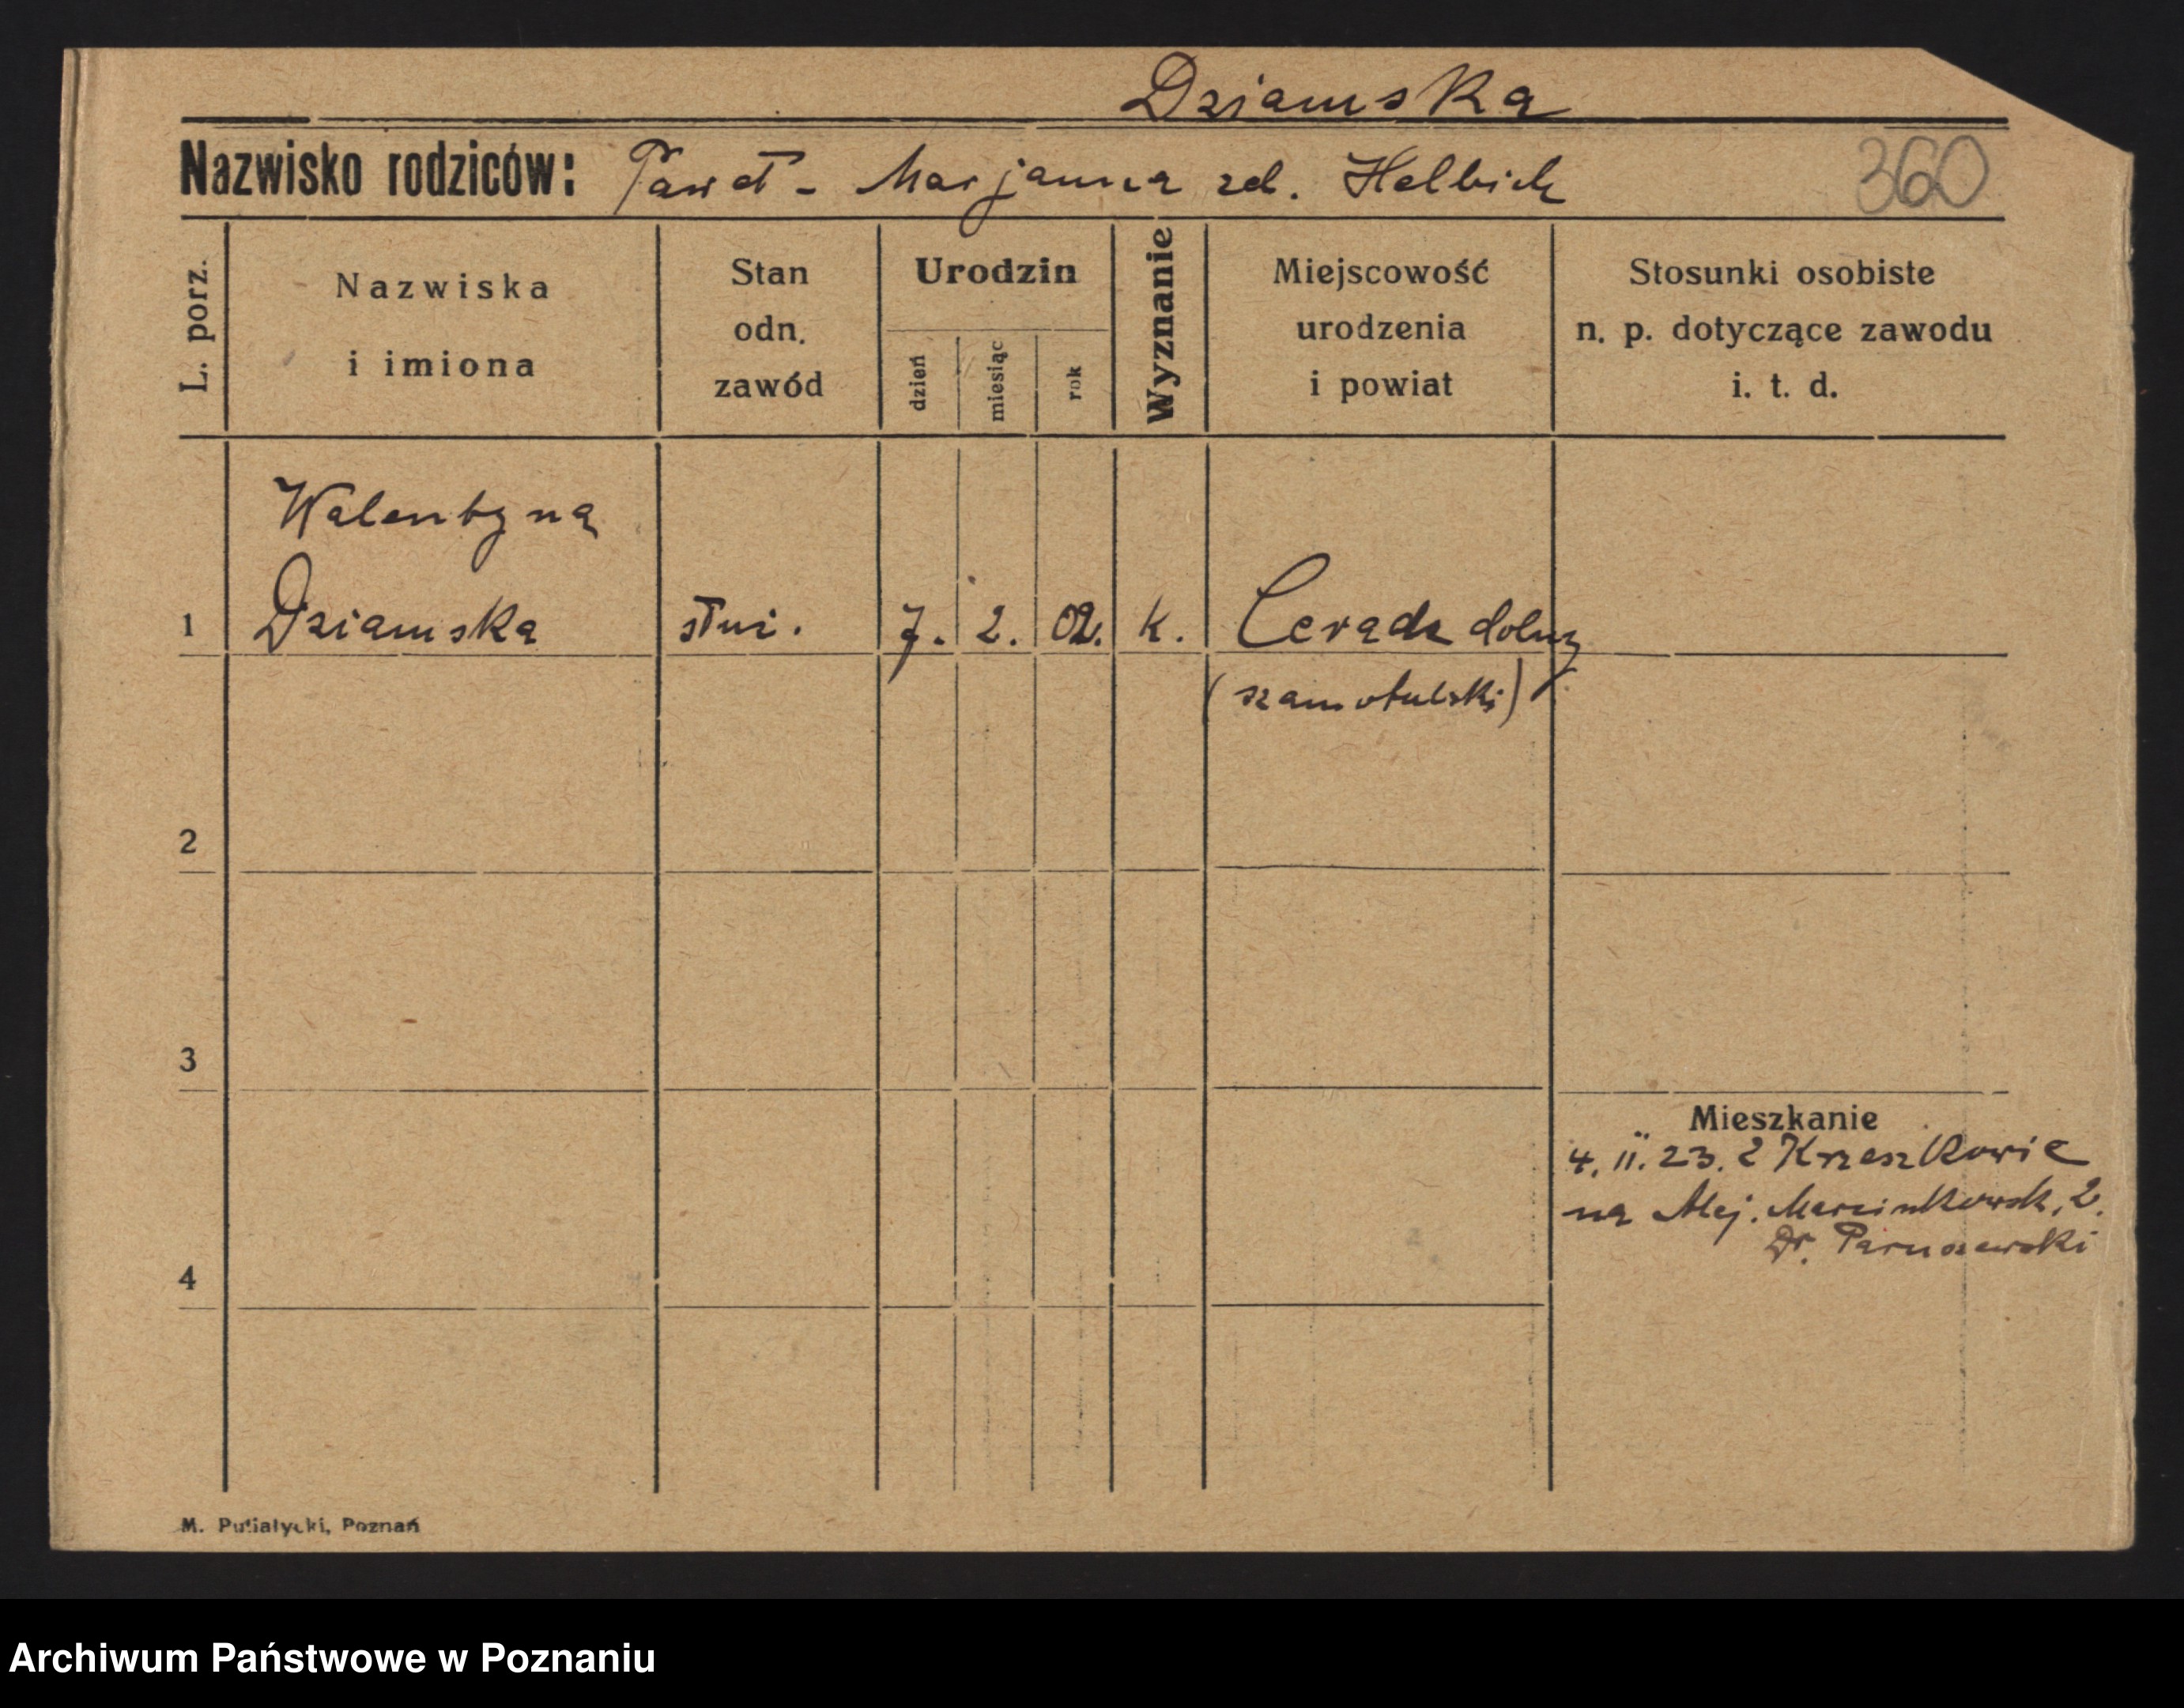 Dziamska
Nazwisko rodziców: Paweł - Marjanna zd. Helbich
360
L. porz.
Nazwiska
i imiona
Stan
odn.
zawód
Urodzin
dzień
miesiąc
rok
Wyznanie
Miejscowość
urodzenia
i powiat
Stosunki osobiste
n. p. dotyczące zawodu
i. t. d.
Walentyna
1 Dziamska służ. 7. 2. 02. k. Ceradz dolny
(szamotulski)
2
3
Mieszkanie
4. II. 23. z Krzeszkowic
na Alej. Marcinkowsk. 2.
Dr. Paruszewski
4
M. Putiatycki, Poznań
Archiwum Państwowe w Poznaniu